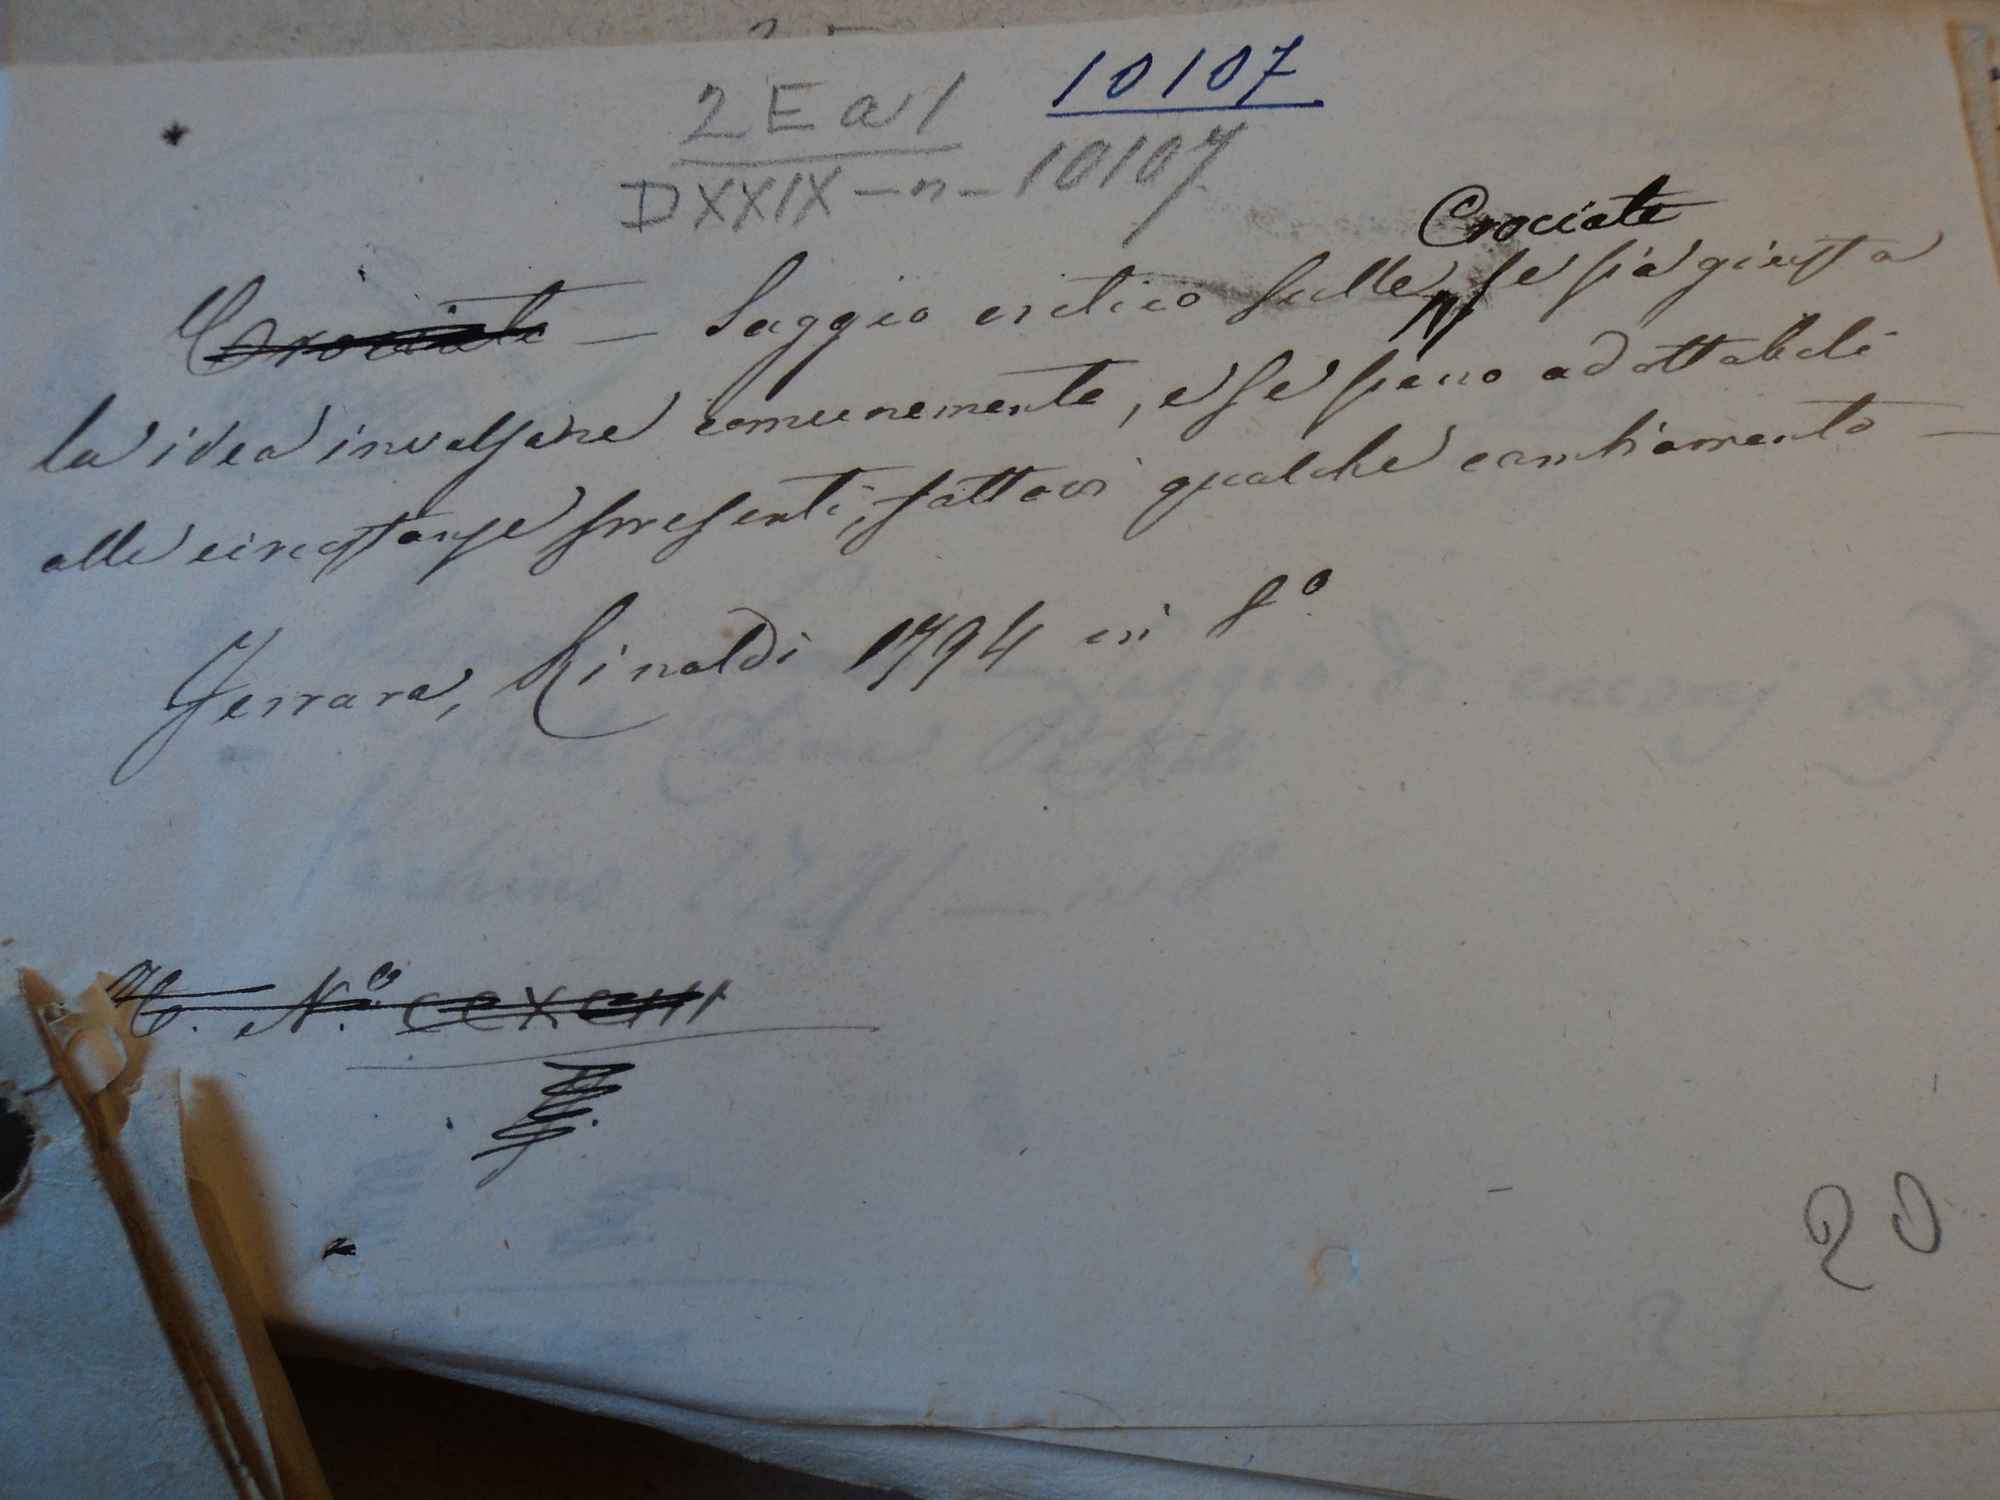 10107
2 E a 1
D XXIX - n - 10107
Crociate
Crociate — Saggio critico sulle se sia giusta
la idea invalsane comunemente, e se siano adottabili
alle circostanze presenti, fattovi qualche cambiamento —
Ferrara, Rinaldi 1794 in 8º
N.º CCXCIII
20